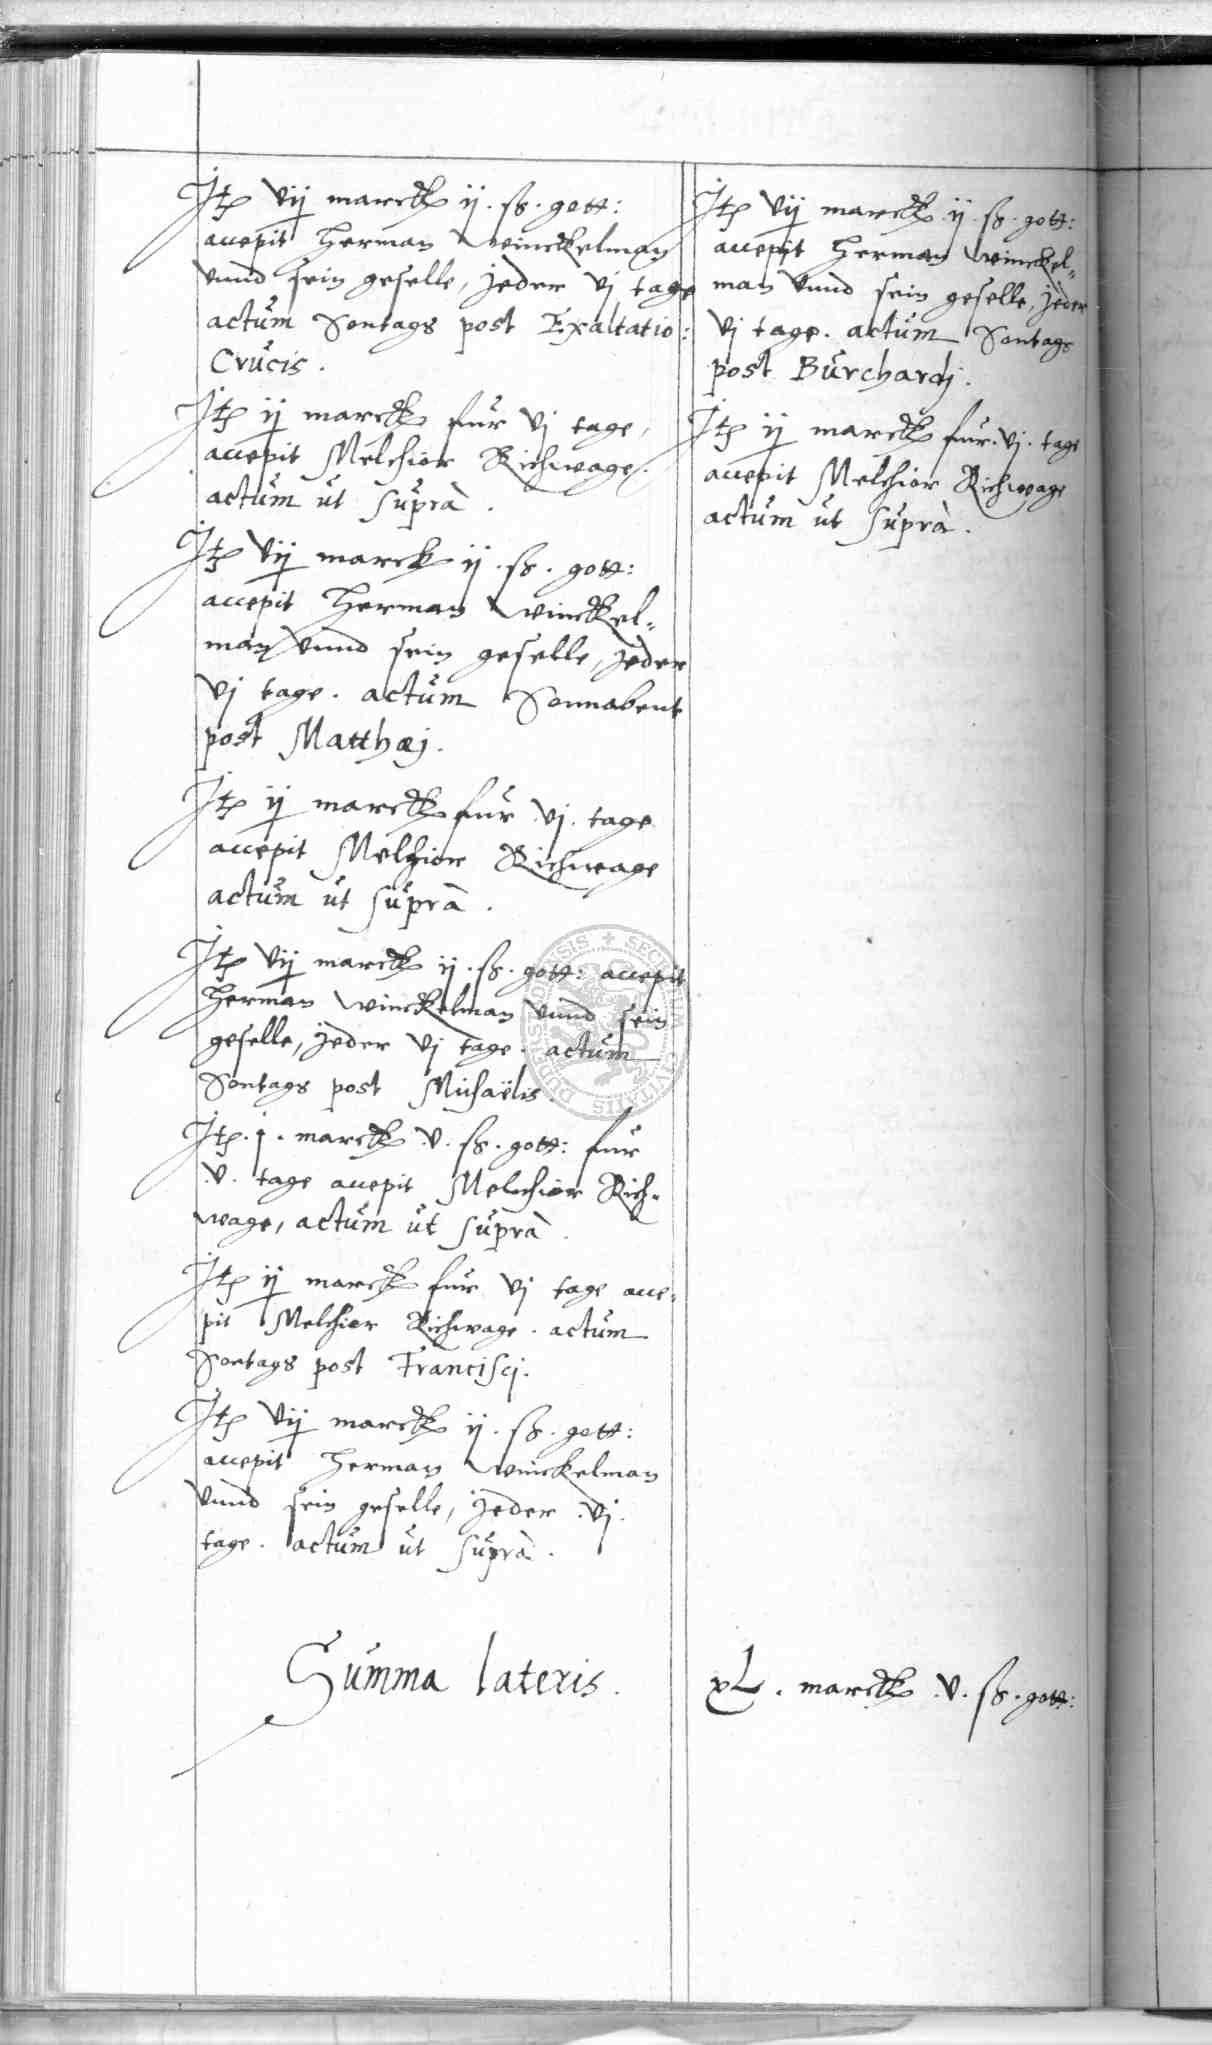 Itē vıȷ marck ij. ß. gott:
accepit Herman Winckelman
vnnd sein geselle, jeder vj tage
actum Sontags post Exaltatio:
Crucis.
Itē ıȷ marck für vj tage,
accepit Melchior Richwage.
actum ut suprà.
Itē vıȷ marck ij. ß. gott:
accepit Herman Winckel-
man vnnd sein geselle, jeder
vj tage. actum Sonnabent
post Matthæj.
Itē ıȷ marck für vj. tage
accepit Melchior Richwage
actum ut suprà.
Itē vıȷ marck ij. ß. gott: accepit
Herman Winckelman vnnd sein
geselle, jeder vj tage. actum
Sontags post Michaëlis.
Itē. j. marck .v. ß. gott: für
.v. tage accepit Melchior Rich-
wage, actum ut suprà.
Itē ıȷ marck für vj tage acce-
pit Melchior Richwage. actum
Sontags post Francisci.
Itē vıȷ marck ij. ß. gott:
accepit Herman Winckelman
vnnd sein geselle, jeder .vj.
tage. actum ut suprà.
Summa lateris.
Itē vıȷ marck ij. ß. gott:
accepit Herman Winckel-
man vnnd sein geselle, jeder
vj tage. actum Sontags
post Burchardj.
Itē ıȷ marck für .vj. tage
accepit Melchior Richwage
actum ut suprà.
xL. marck .v. ß. gott:
DUDERSTADIENSIS + SECRETUM CIVITATIS